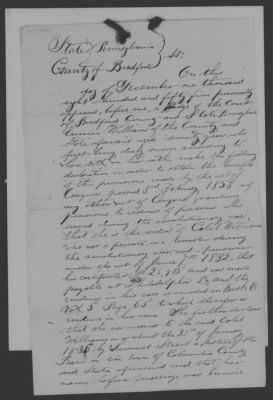 State of Pennsylvania
County of Bradford } SS:
On this
day of December one thousand
eight hundred and fifty five personally
appeared before me, a Judge of the Court
of Bradford County and State Pennsylvania
Williams of the County and
State aforesaid aged seventy years who
first being duly sworn according to
law, doth on her oath make the following
declaration in order to obtain the benefits
of the provisions made by the act of
Congress passed 3d February 1853 or
any other act of Congress granting
pensions to widows of persons who
served during the revolutionary war,
that she is the widow of Caleb Williams
who was a private
the revolutionary war and pensioner
under the act of June 7th 1832, that
his certificate and was made
payable at Philadelphia Pa and the
evidence in his case is recorded in Book E
Vol 5 Page to which she refers as
evidence in her case. She further declares
that she was married to the said Caleb
Williams on or about the of January
by Samuel Strait a Justice of the
Peace in the town of Columbia County
and State aforesaid and that her
name before marriage was